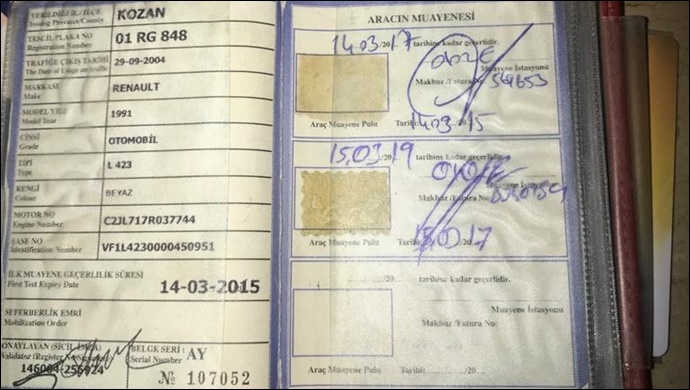 VERİLDİĞİ İL / İLÇE KOZAN
TESCİL PLAKA NO 01 RG 848
Registration Number
TRAFİĞE ÇIKIŞ TARİHİ 29-09-2004
MARKASI RENAULT
Make
MODEL YILI 1991
Model Year
CİNSİ OTOMOBİL
Grade
TİPİ L 423
Type
RENGİ BEYAZ
Colour
MOTOR NO C2JL717R037744
Engine Number
ŞASE NO VF1L4230000450951
Identification Number
İLK MUAYENE GEÇERLİLİK SÜRESİ
First Test Expiry Date 14-03-2015
SEFERBERLİK EMRİ
Mobilization Order
ONAYLAYAN (SİCİL, İMZA) BELGE SERİ : AY
Serial Number
№ 107052
ARACIN MUAYENESİ
14.03./20 17 tarihine kadar geçerlidir.
Muayene İstasyonu
Makbuz /Fatura No:
Araç Muayene Pulu Tarih: 14.03.15
15.03./20 19 tarihine kadar geçerlidir.
Makbuz /Fatura No:
Araç Muayene Pulu Tarih:
/20 tarihine kadar geçerlidir.
Muayene İstasyonu
Makbuz /Fatura No:
Araç Muayene Pulu Tarih: